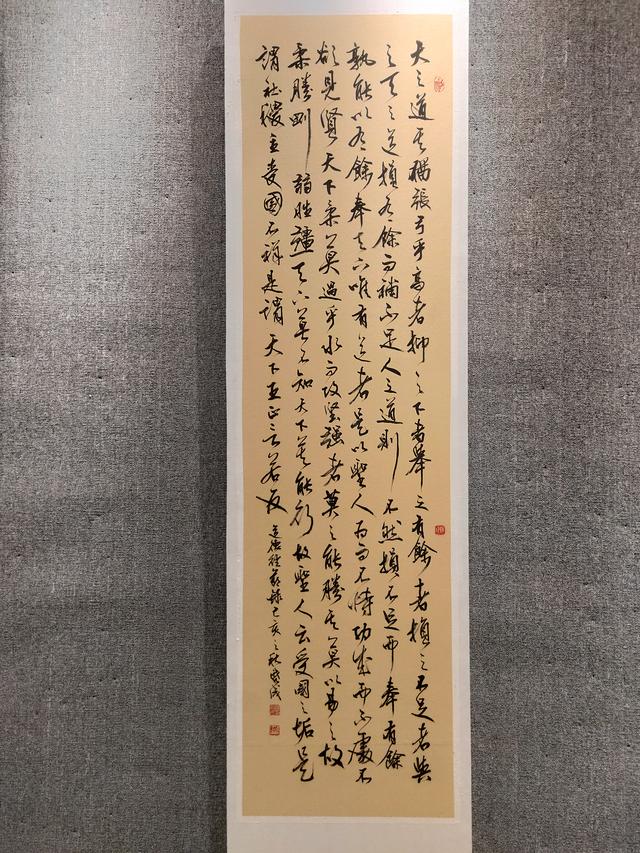 天之道其猶張弓乎高者抑之下者舉之有餘者損之不足者與
之天之道損有餘而補不足人之道則不然損不足而奉有餘
孰能以有餘奉天下唯有道者是以聖人為而不恃功成而不處不
欲見賢天下柔莫過乎水而攻堅強者莫之能勝其莫以易之故
柔勝剛弱胜彊天下莫不知天下莫能行故聖人云受國之垢是
謂社稷主受國不祥是謂天下王正言若反
道德經節錄己亥之秋